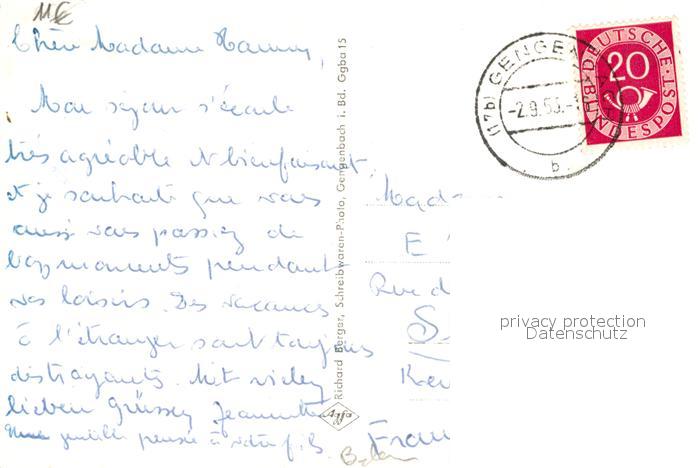 Chère Madame
Mon séjour s'écoule
très agréable et bienfaisant,
et je souhaite que vous
aussi vous passiez de
bons moments pendant
vos loisirs. Des vacances
à l'étranger sont toujours
distrayants. Mit vielen
lieben Grüssen Jeannette
gentille pensée à votre fils.
Richard Berger, Schreibwaren-Photo, Gengenbach i. Bd. Ggba 15
Agfa
(17b) GENGEN
-2.9.53.-
b
DEUTSCHE
BUNDESPOST
20
Mad
E
Rue d
S
Fran
privacy protection
Datenschutz